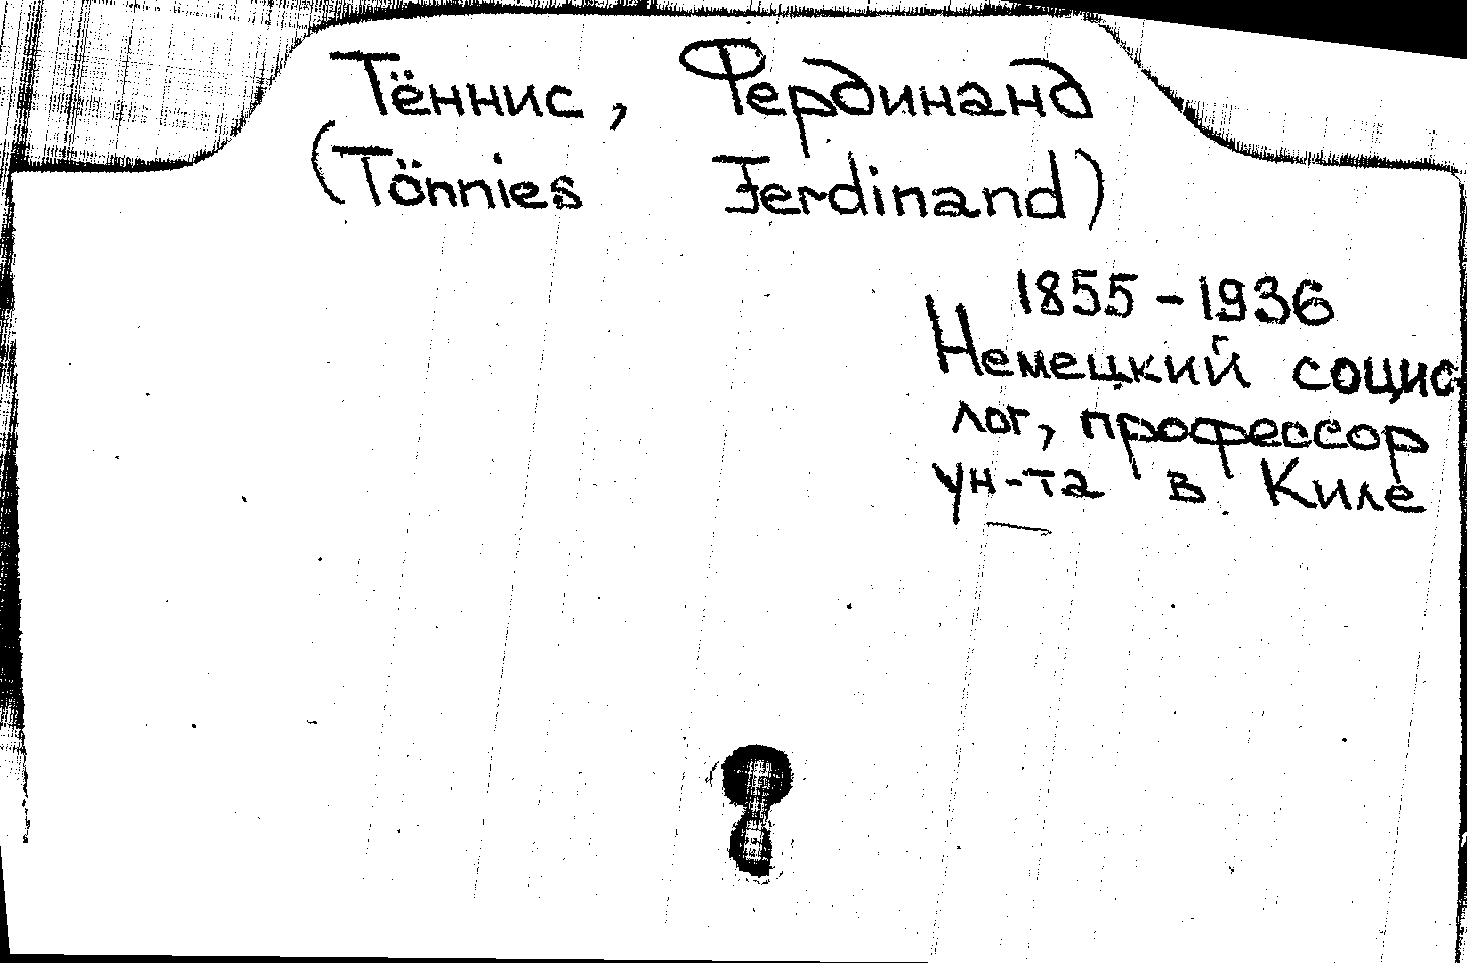 Тённис, Фердинанд
(Tönnies Ferdinand)
1855-1936
Немецкий социо
лог, профессор
ун-та в Киле